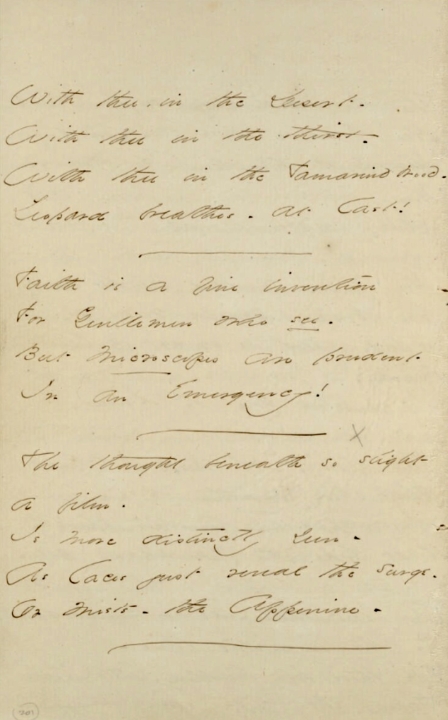 With thee, in the Desert -
With thee in the thirst -
With thee in the Tamarind wood -
Leopard breathes - at last!
Faith is a fine invention
For Gentlemen who see -
But Microscopes are prudent
In an Emergency!
The thought beneath so slight
a film -
Is more distinctly seen -
As laces just reveal the surge -
Or Mists - the Appenine -